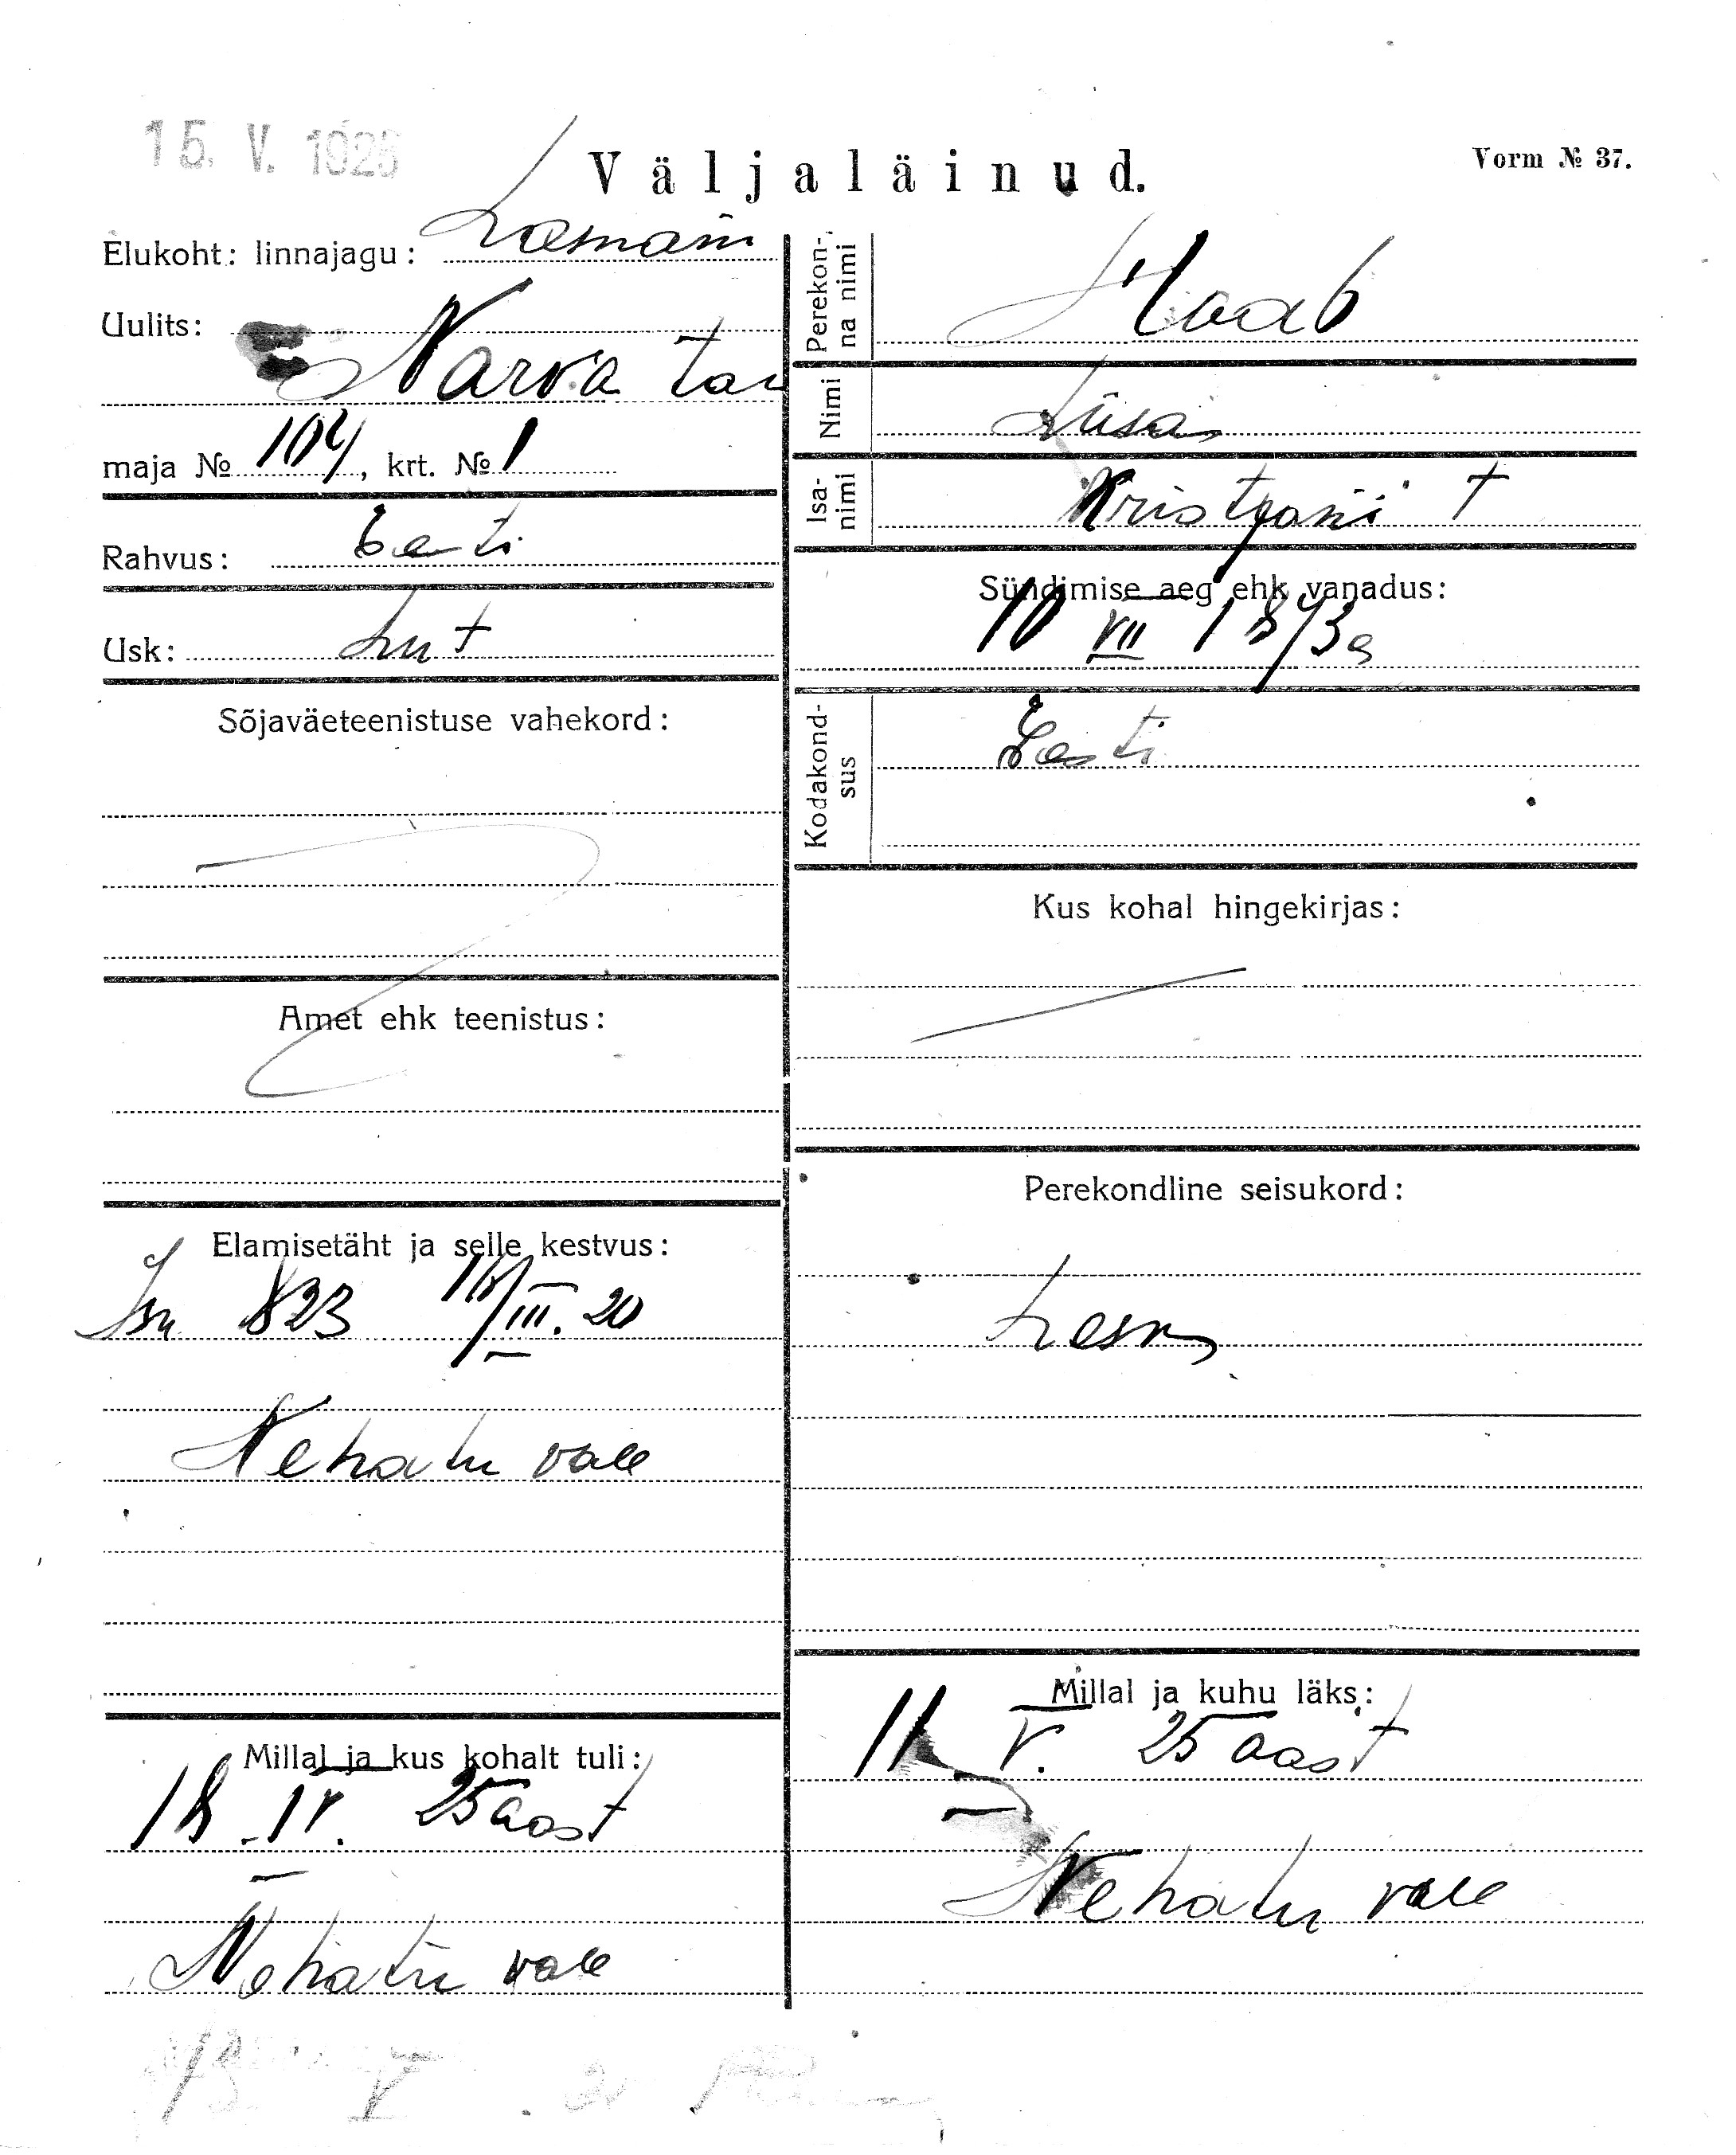 15. V. 1925
Väljaläinud.
Vorm № 37.
Elukoht: linnajagu: Lasnam
Uulits:
Narva tan
maja № 104, krt. № 1
Rahvus: Eesti
Usk: Lut
Sõjaväeteenistuse vahekord:
Amet ehk teenistus:
Elamisetäht ja selle kestvus:
Isn 823 16/III. 20
Nehatu vall
Millal ja kus kohalt tuli:
18. IV. 25 aast
Nehatu vall
Perekon-
na nimi
Nimi Liisa
Isa-
nimi Kristjani t
Sündimise aeg ehk vanadus:
10 VII 1873 a
Kodakond-
sus Eesti
Kus kohal hingekirjas:
Perekondline seisukord:
Lesk
Millal ja kuhu läks:
11 V. 25 aast
Nehatu vall